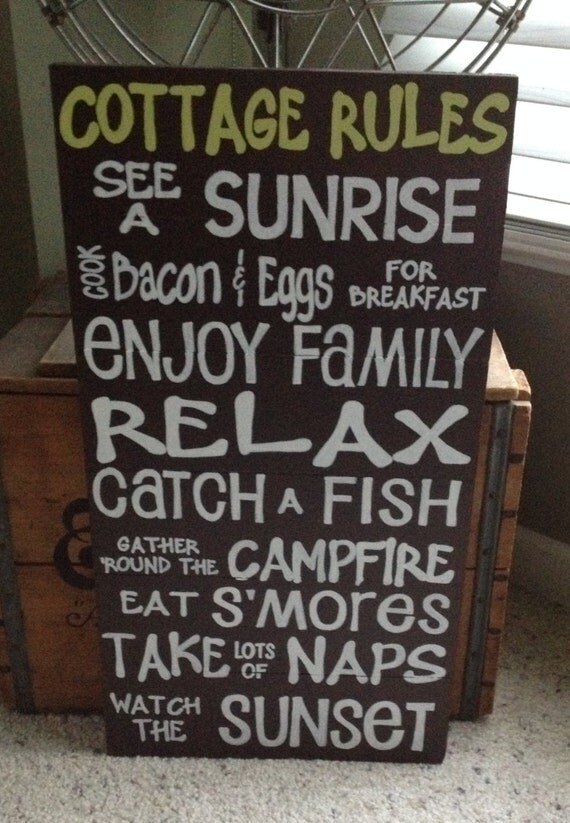 COTTAGE RULES
SEE A SUNRISE
COOK Bacon & Eggs FOR BREAKFAST
eNJOY FaMILY
RELAX
CaTCH A FISH
GATHER 'ROUND THE CAMPFIRE
EAT S'MOReS
TAKE LOTS OF NAPS
WATCH THE SUNSeT